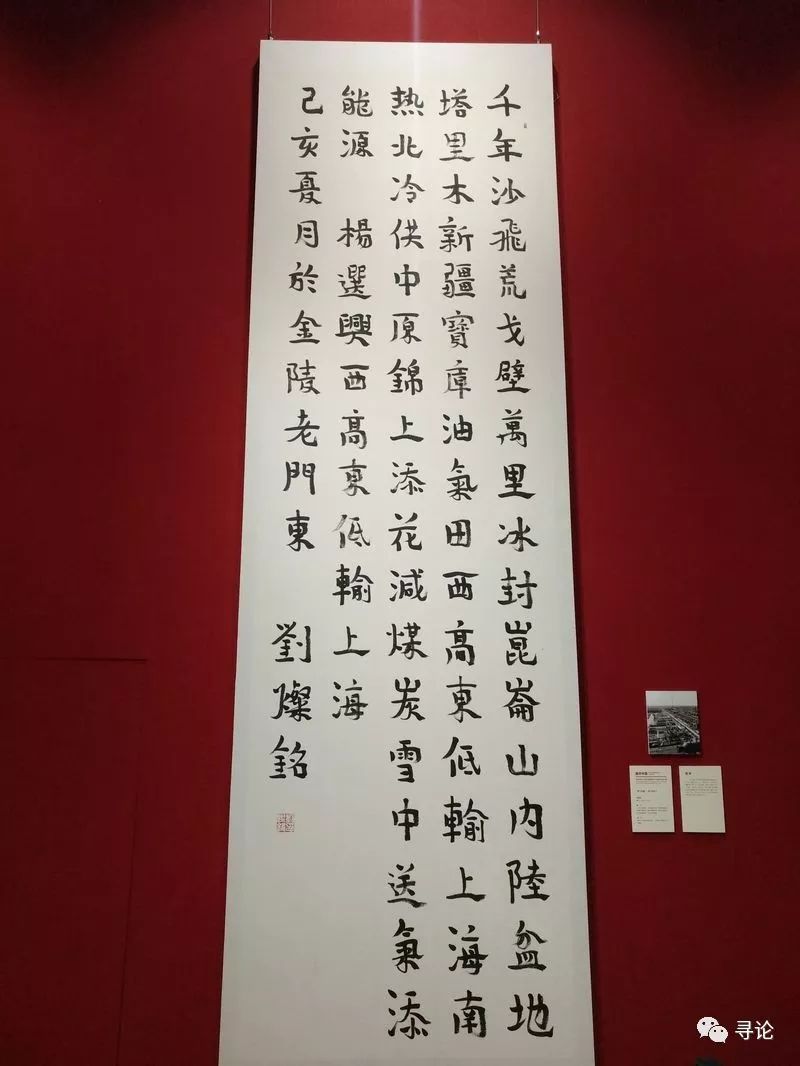 千年沙飛荒戈壁萬里冰封崑崙山内陸盆地
塔里木新疆寶庫油氣田西高東低輸上海南
热北冷供中原錦上添花減煤炭雪中送氣添
能源 楊選興西高東低輸上海
己亥夏月於金陵老門東 劉燦銘
寻论